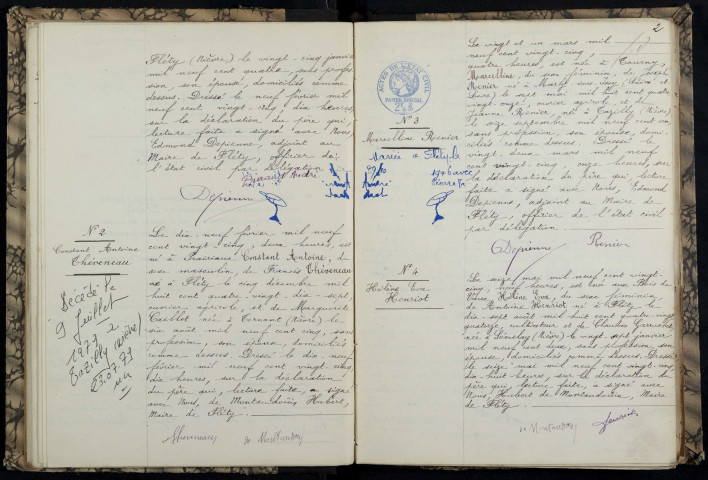 Fléty (Nièvre) le vingt-cinq janvier
mil neuf cent quatre, sans profes
sion, son épouse, domiciliés comme
dessus. Dressé le neuf février mil
neuf cent vingt-cinq, dix heures,
sur la déclaration du père qui,
lecture faite a signé avec Nous,
Edmond Depienne, adjoint au
Maire de Fléty, officier de
l'état civil par délégation
Depienne
N° 2
Constant Antoine
Théveneau
Décédé le
9 Juillet
1977 à
Tazilly (Nièvre)
23.07.79
Le dix-neuf février mil neuf
cent vingt-cinq, deux heures, est
né à Constant Antoine, du
sexe masculin, de Francis Théveneau
né à Fléty le cinq décembre mil
huit cent quatre-vingt-dix-sept,
ouvrier agricole, et de Marguerite
née à Ternant (Nièvre) le
six août mil neuf cent cinq, sans
profession, son épouse, domiciliés
comme dessus. Dressé le dix-neuf
février mil neuf cent vingt-cinq,
dix heures, sur la déclaration
du père qui, lecture faite, a signé
avec Nous, de Montaudouin Hubert,
Maire de Fléty.
Theveneau de Montaudoüin
2
ACTES DE L'ÉTAT CIVIL
PAPIER SPÉCIAL
N° 3
Marcelline Renier
Mariée à Fléty le
1946 avec
Le vingt et un mars mil
neuf cent vingt-cinq,
quatre heures, est née à
Marcelline, du sexe féminin, de Joseph
Renier né à
le dix mil huit cent quatre
vingt onze, ouvrier agricole, et de
Jeanne née à (Nièvre)
le onze septembre mil neuf cent un
sans profession, son épouse, domi
ciliés comme dessus. Dressé le
vingt deux mars mil neuf
cent vingt-cinq, onze heures, sur
la déclaration du père qui, lecture
faite a signé avec Nous, Edmond
Depienne, adjoint au Maire de
Fléty, officier de l'état civil
par délégation.
Depienne Renier
N° 4
Hélène Eva
Henriot
Le seize mai mil neuf cent vingt-
cinq, neuf heures, est née aux Bois de
Hélène Eva, du sexe féminin,
de Antoine Henriot né à Fléty le
dix-sept août mil huit cent quatre vingt
quatorze, cultivateur et de Claudine
née à (Nièvre) le vingt-sept janvier
mil neuf cent deux, sans profession son
épouse, domiciliés comme dessus. Dressé
le seize mai mil neuf cent vingt-cinq
dix-huit heures, sur la déclaration du
père qui, lecture faite, a signé avec
Nous, Hubert de Montaudouin, Maire
de Fléty.
de Montaudoüin Henriot